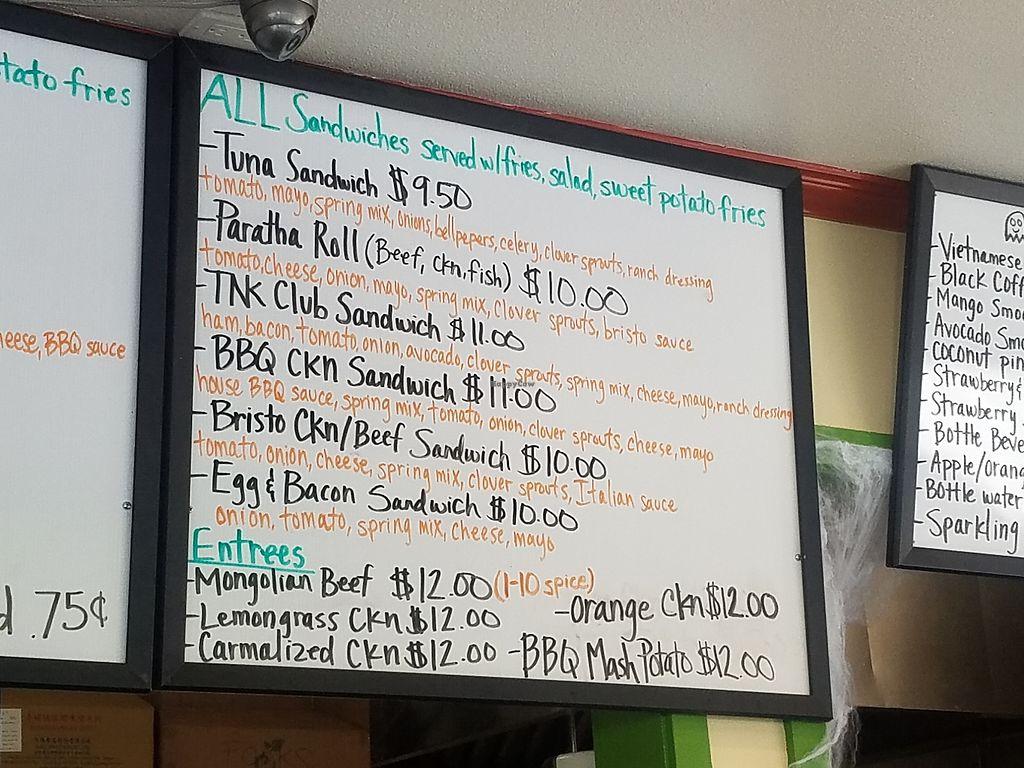 tato fries
eese, BBQ sauce
d .75¢
ALL Sandwiches served w/fries, salad, sweet potato fries
-Tuna Sandwich $9.50
tomato, mayo, spring mix, onions, bellpepers, celery, clover sprouts, ranch dressing
-Paratha Roll (Beef, Ckn, fish) $10.00
tomato, cheese, onion, mayo, spring mix, clover sprouts, bristo sauce
-TNK Club Sandwich $11.00
ham, bacon, tomato, onion, avocado, clover sprouts, spring mix, cheese, mayo, ranch dressing
-BBQ CKn Sandwich $11.00
house BBQ sauce, spring mix, tomato, onion, clover sprouts, cheese, mayo
-Bristo Ckn/Beef Sandwich $10.00
tomato, onion, cheese, spring mix, clover sprouts, Italian sauce
-Egg & Bacon Sandwich $10.00
onion, tomato, spring mix, cheese, mayo
Entrees
-Mongolian Beef $12.00 (1-10 spice)
-Orange Ckn $12.00
-Lemongrass CKn $12.00
-Carmalized CKn $12.00
-BBQ Mash Potato $12.00
-Vietnamese
-Black Coff
-Mango Smoo
-Avocado Smo
-Coconut pin
-Strawberry &
-Strawberry
-Bottle Beve
-Apple/Orang
-Bottle water
-Sparkling
HappyCow